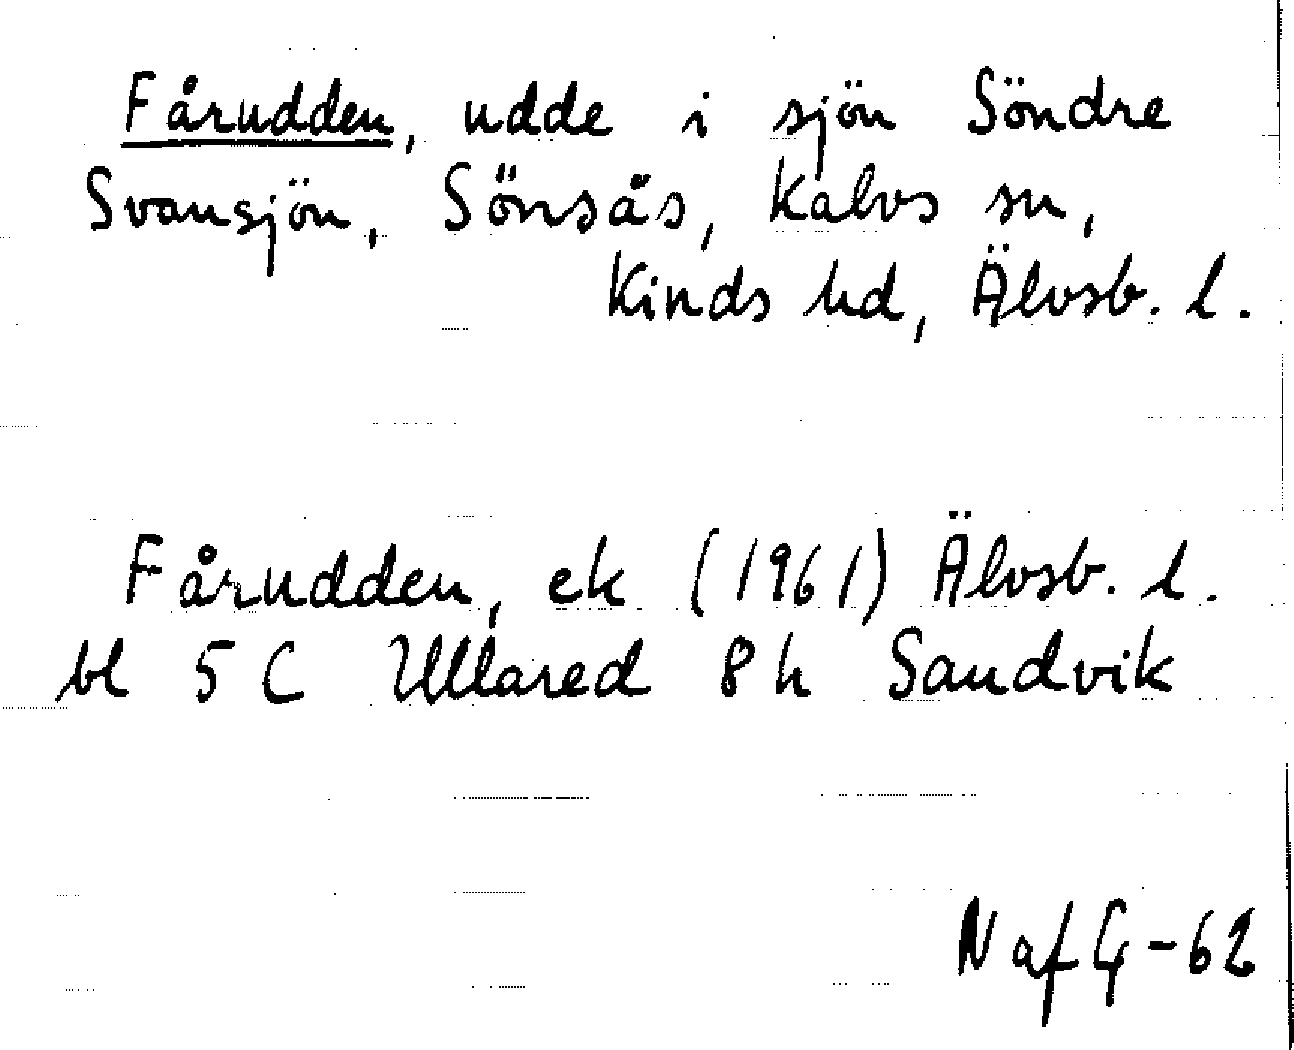 Fårudden, udde i sjön Söndre
Svansjön, Sönsås, Kalvs sn,
Kinds hd, Älvsb. l.
Fårudden, ek (1961) Älvsb. l.
bl 5 C Ullared 8 h Sandvik
N af G - 62